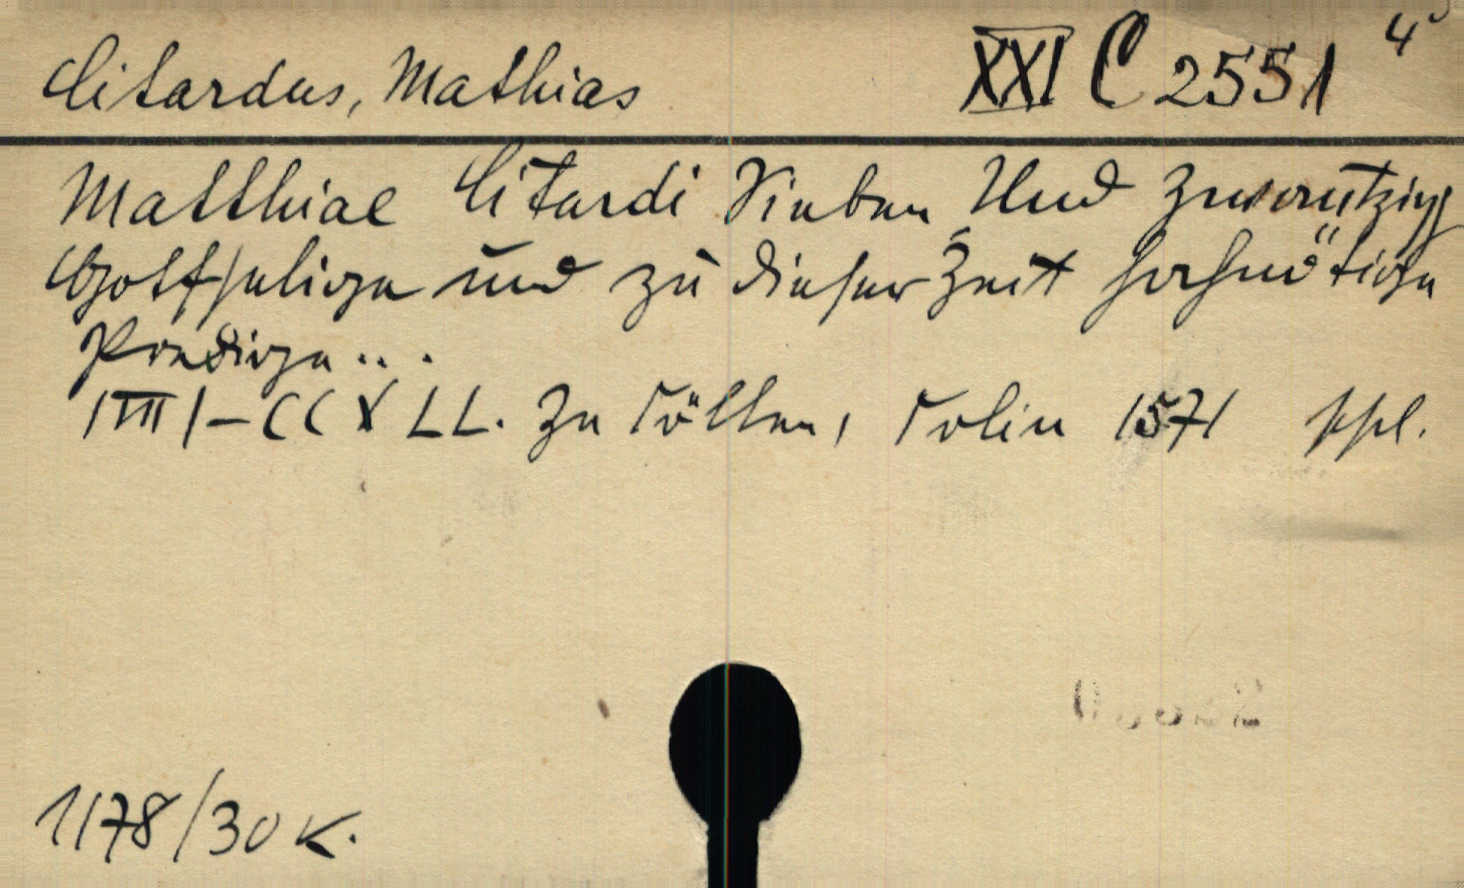 Citardus, Mathias XXI C 2551 4°
Matthiae Citardi Sieben Und Zwantzig
Gottselige und zu dieser Zeit hochnötige
Predige...
Zu Cöllen, Colin 1571
1178/30 K.